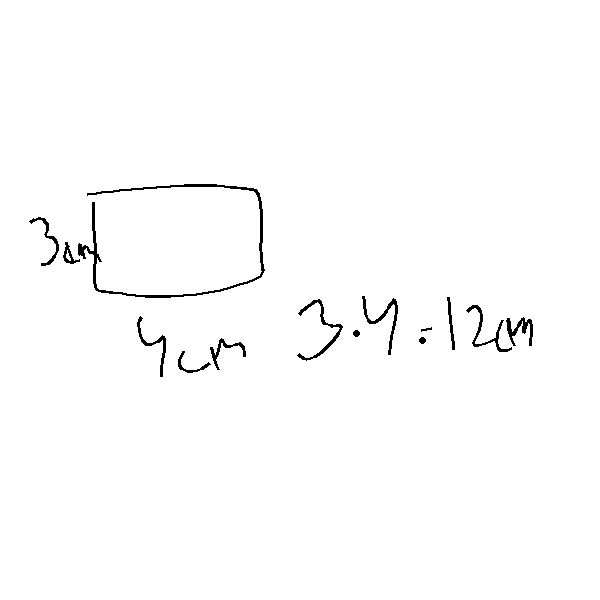 3cm
4cm 3·4=12cm